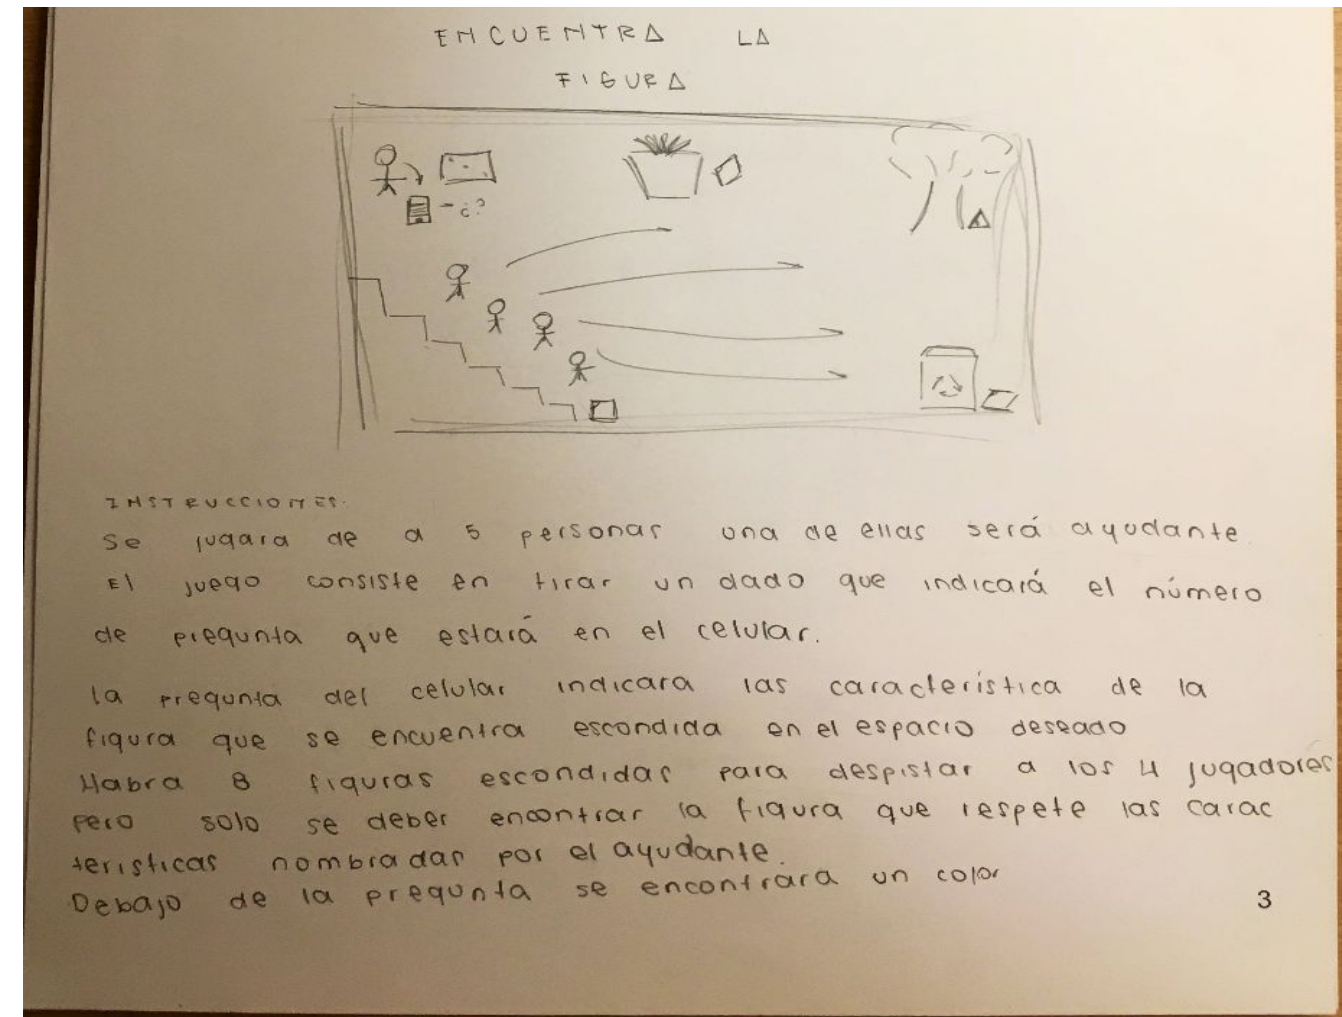 ENCUENTRA LA
FIGURA
- ¿?
INSTRUCCIONES.
Se jugara de a 5 personas una de ellas será ayudante.
El juego consiste en tirar un dado que indicará el número
de pregunta que estará en el celular.
la pregunta del celular indicara las característica de la
figura que se encuentra escondida en el espacio deseado
Habra 8 figuras escondidas para despistar a los 4 jugadores
pero solo se deber encontrar la figura que respete las carac
teristicas nombradas por el ayudante.
Debajo de la pregunta se encontrara un color
3